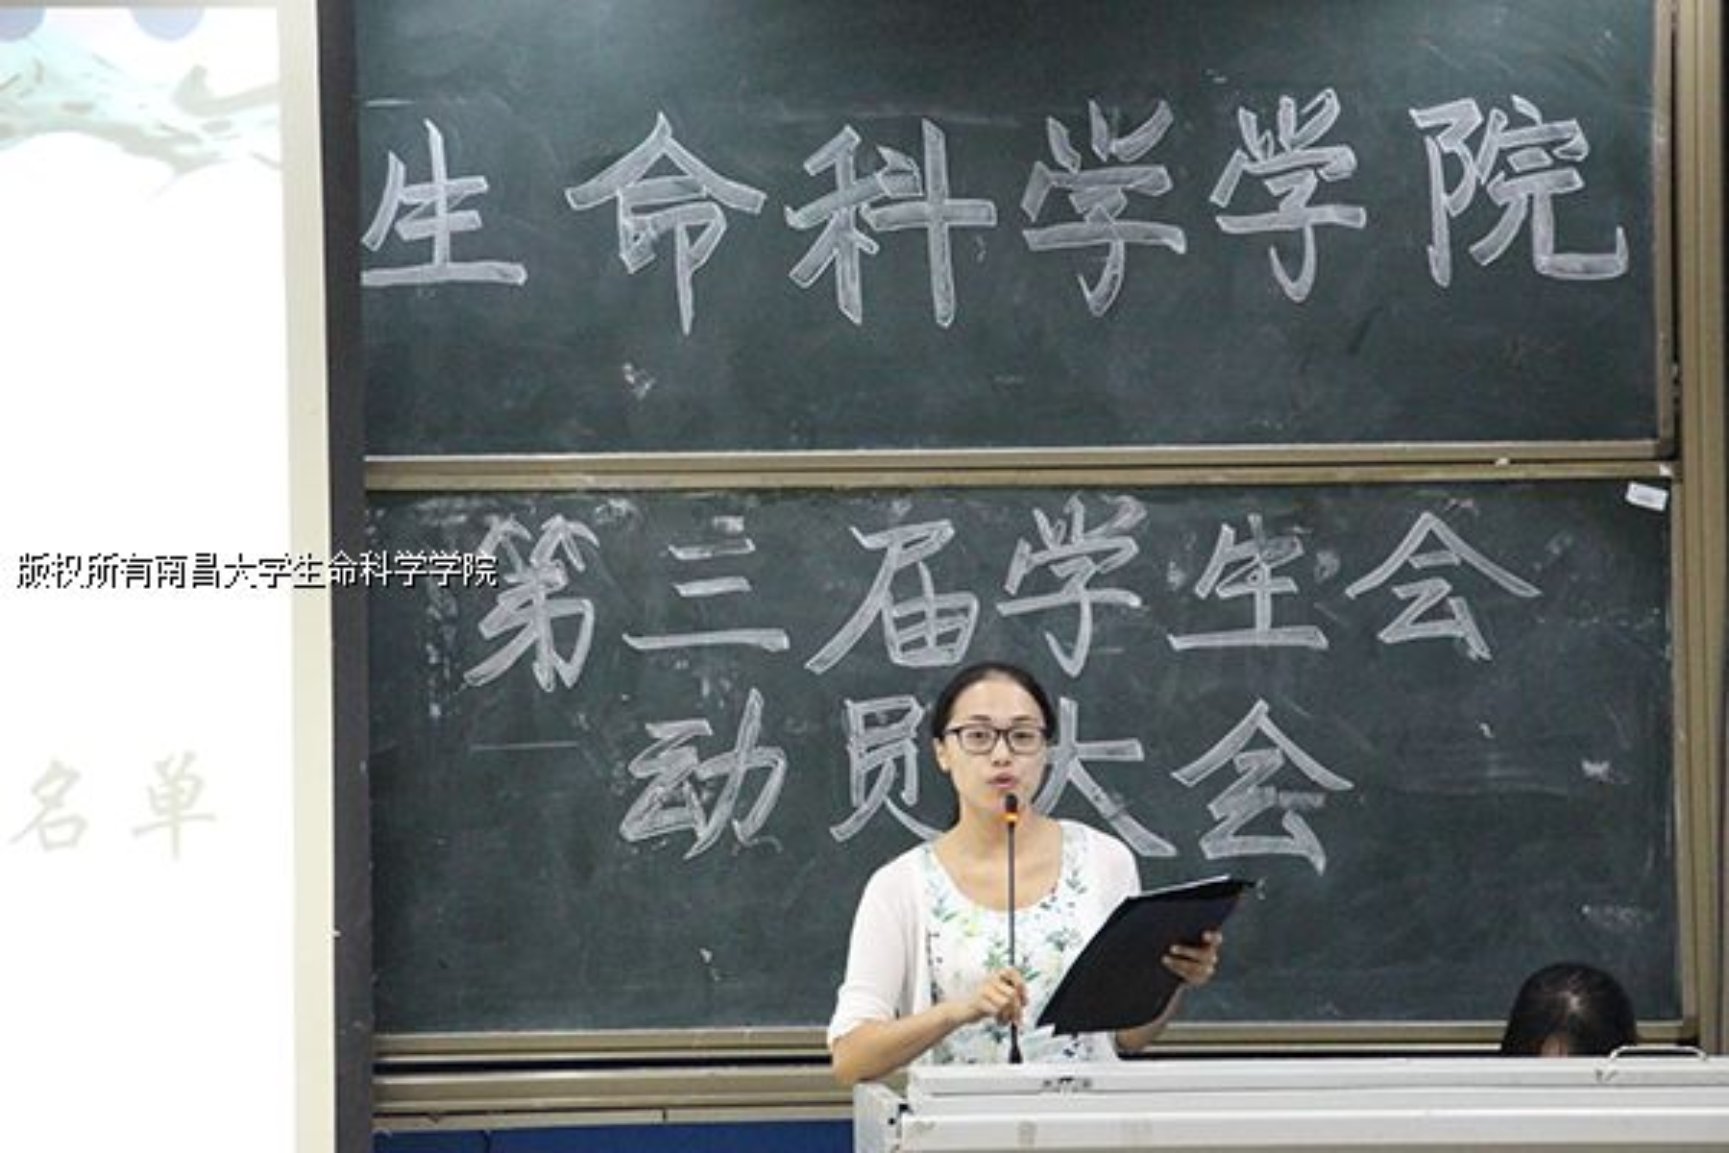 生命科学学院
第三届学生会
动员大会
版权所有南昌大学生命科学学院
名单